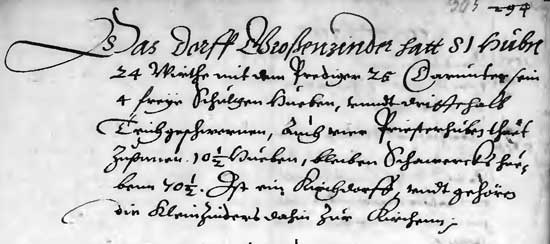 294
Das Dorff Großenzünder hatt 81 Hüben
24 Wirthe mit dem Prediger 25 Darunter sein
4 freÿe Schultzen Hueben, vndt dritthalb
Teichgeschwornen, Auch vier Priesterhüben thuet
Zusamen. 10½ Hueben, bleiben Scharwercks hue-
benn 70½. Ist ein Kirchdorff, vndt gehören
die Klein Zünders dahin Zur Kirchenn.